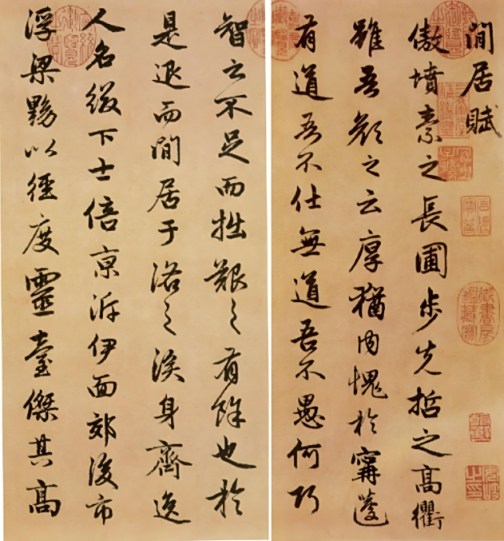 閒居賦
傲墳素之長圃步先哲之高衢
雖吾顏之云厚猶內愧於甯蘧
有道吾不仕無道吾不愚何巧
智之不足而拙艱之有餘也於
是退而閒居于洛之涘身齊逸
人名綴下士倍京泝伊面郊後市
浮梁黝以徑度靈臺傑其高